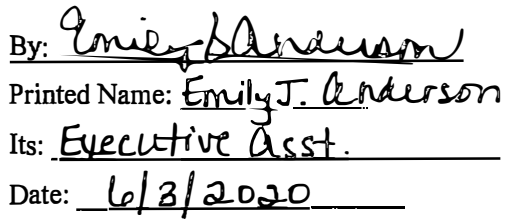 By: Emily J Anderson
Printed Name: Emily J. Anderson
Its: Executive Asst.
Date: 6/3/2020